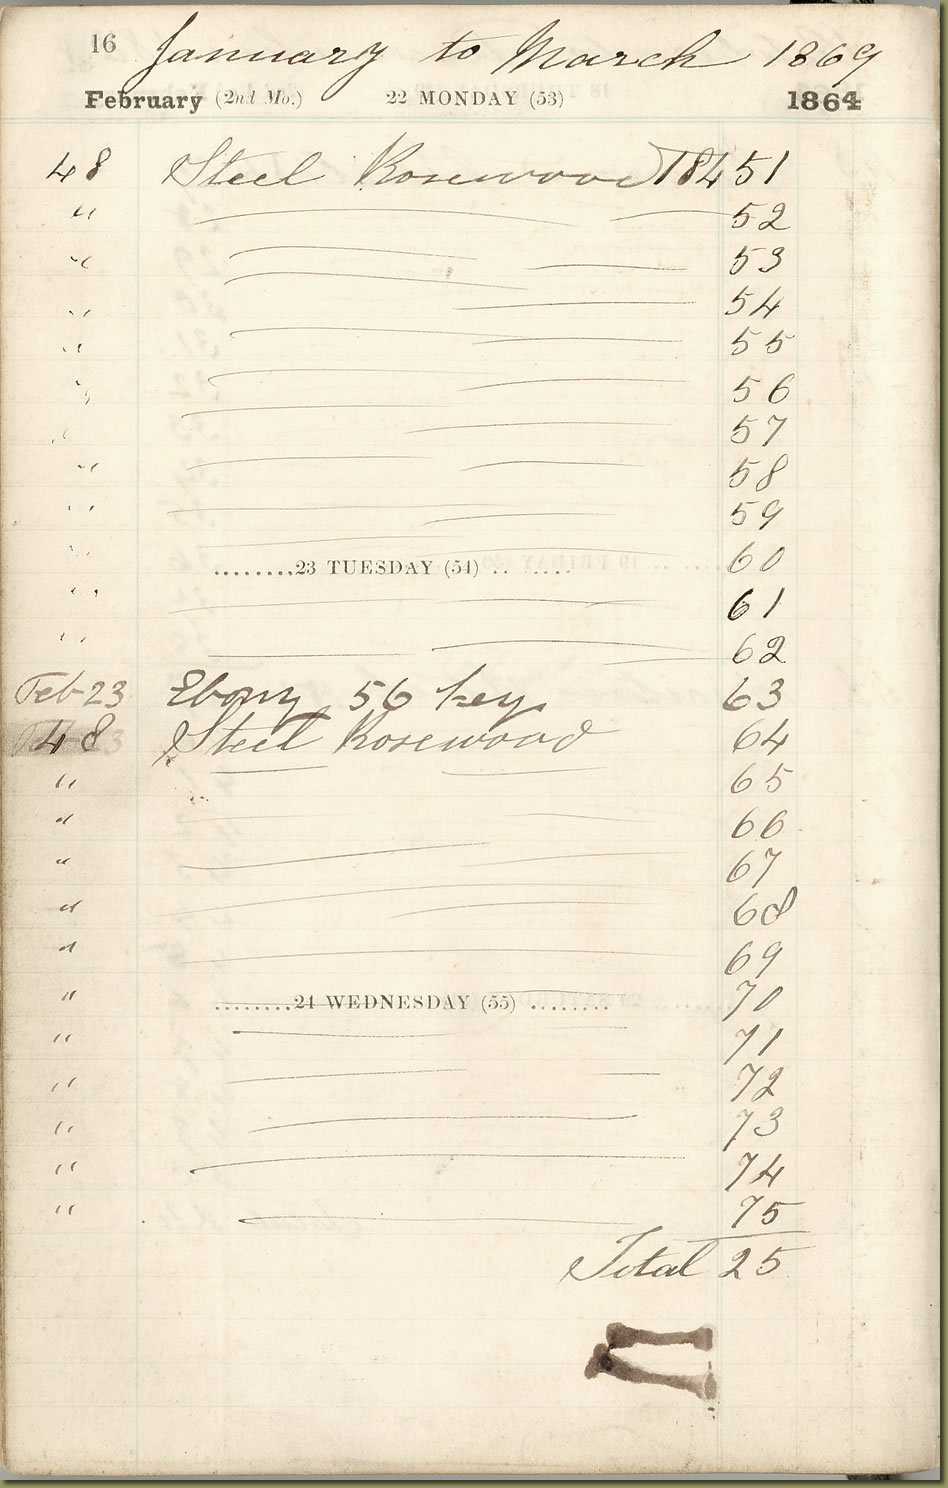 16 January to March 1869
February (2nd Mo.) 22 MONDAY (53) 1864
48 Steel Rosewood 18451
" 52
" 53
" 54
" 55
" 56
" 57
" 58
" 59
" 60
........23 TUESDAY (54) .. ......
" 61
" 62
Feb 23 Ebony 56 key 63
48 Steel Rosewood 64
" 65
" 66
" 67
" 68
" 69
" 70
........24 WEDNESDAY (55) ........
" 71
" 72
" 73
" 74
" 75
Total 25